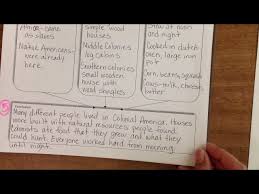 Major - same as
slaves
Native Americans-
were already
here.
simple wood
houses
Middle Colonies
log cabins
Southern Colonies
small wooden
house with
wood shingles
Stew at noon
and night
Cooked in dutch
oven, large iron
pot
Corn, beans, squash
milk, butter
Many different people lived in Colonial America. Houses
were built with natural resources people found.
Colonists ate food that they grew and what they
could hunt. Everyone worked hard from morning
until night.